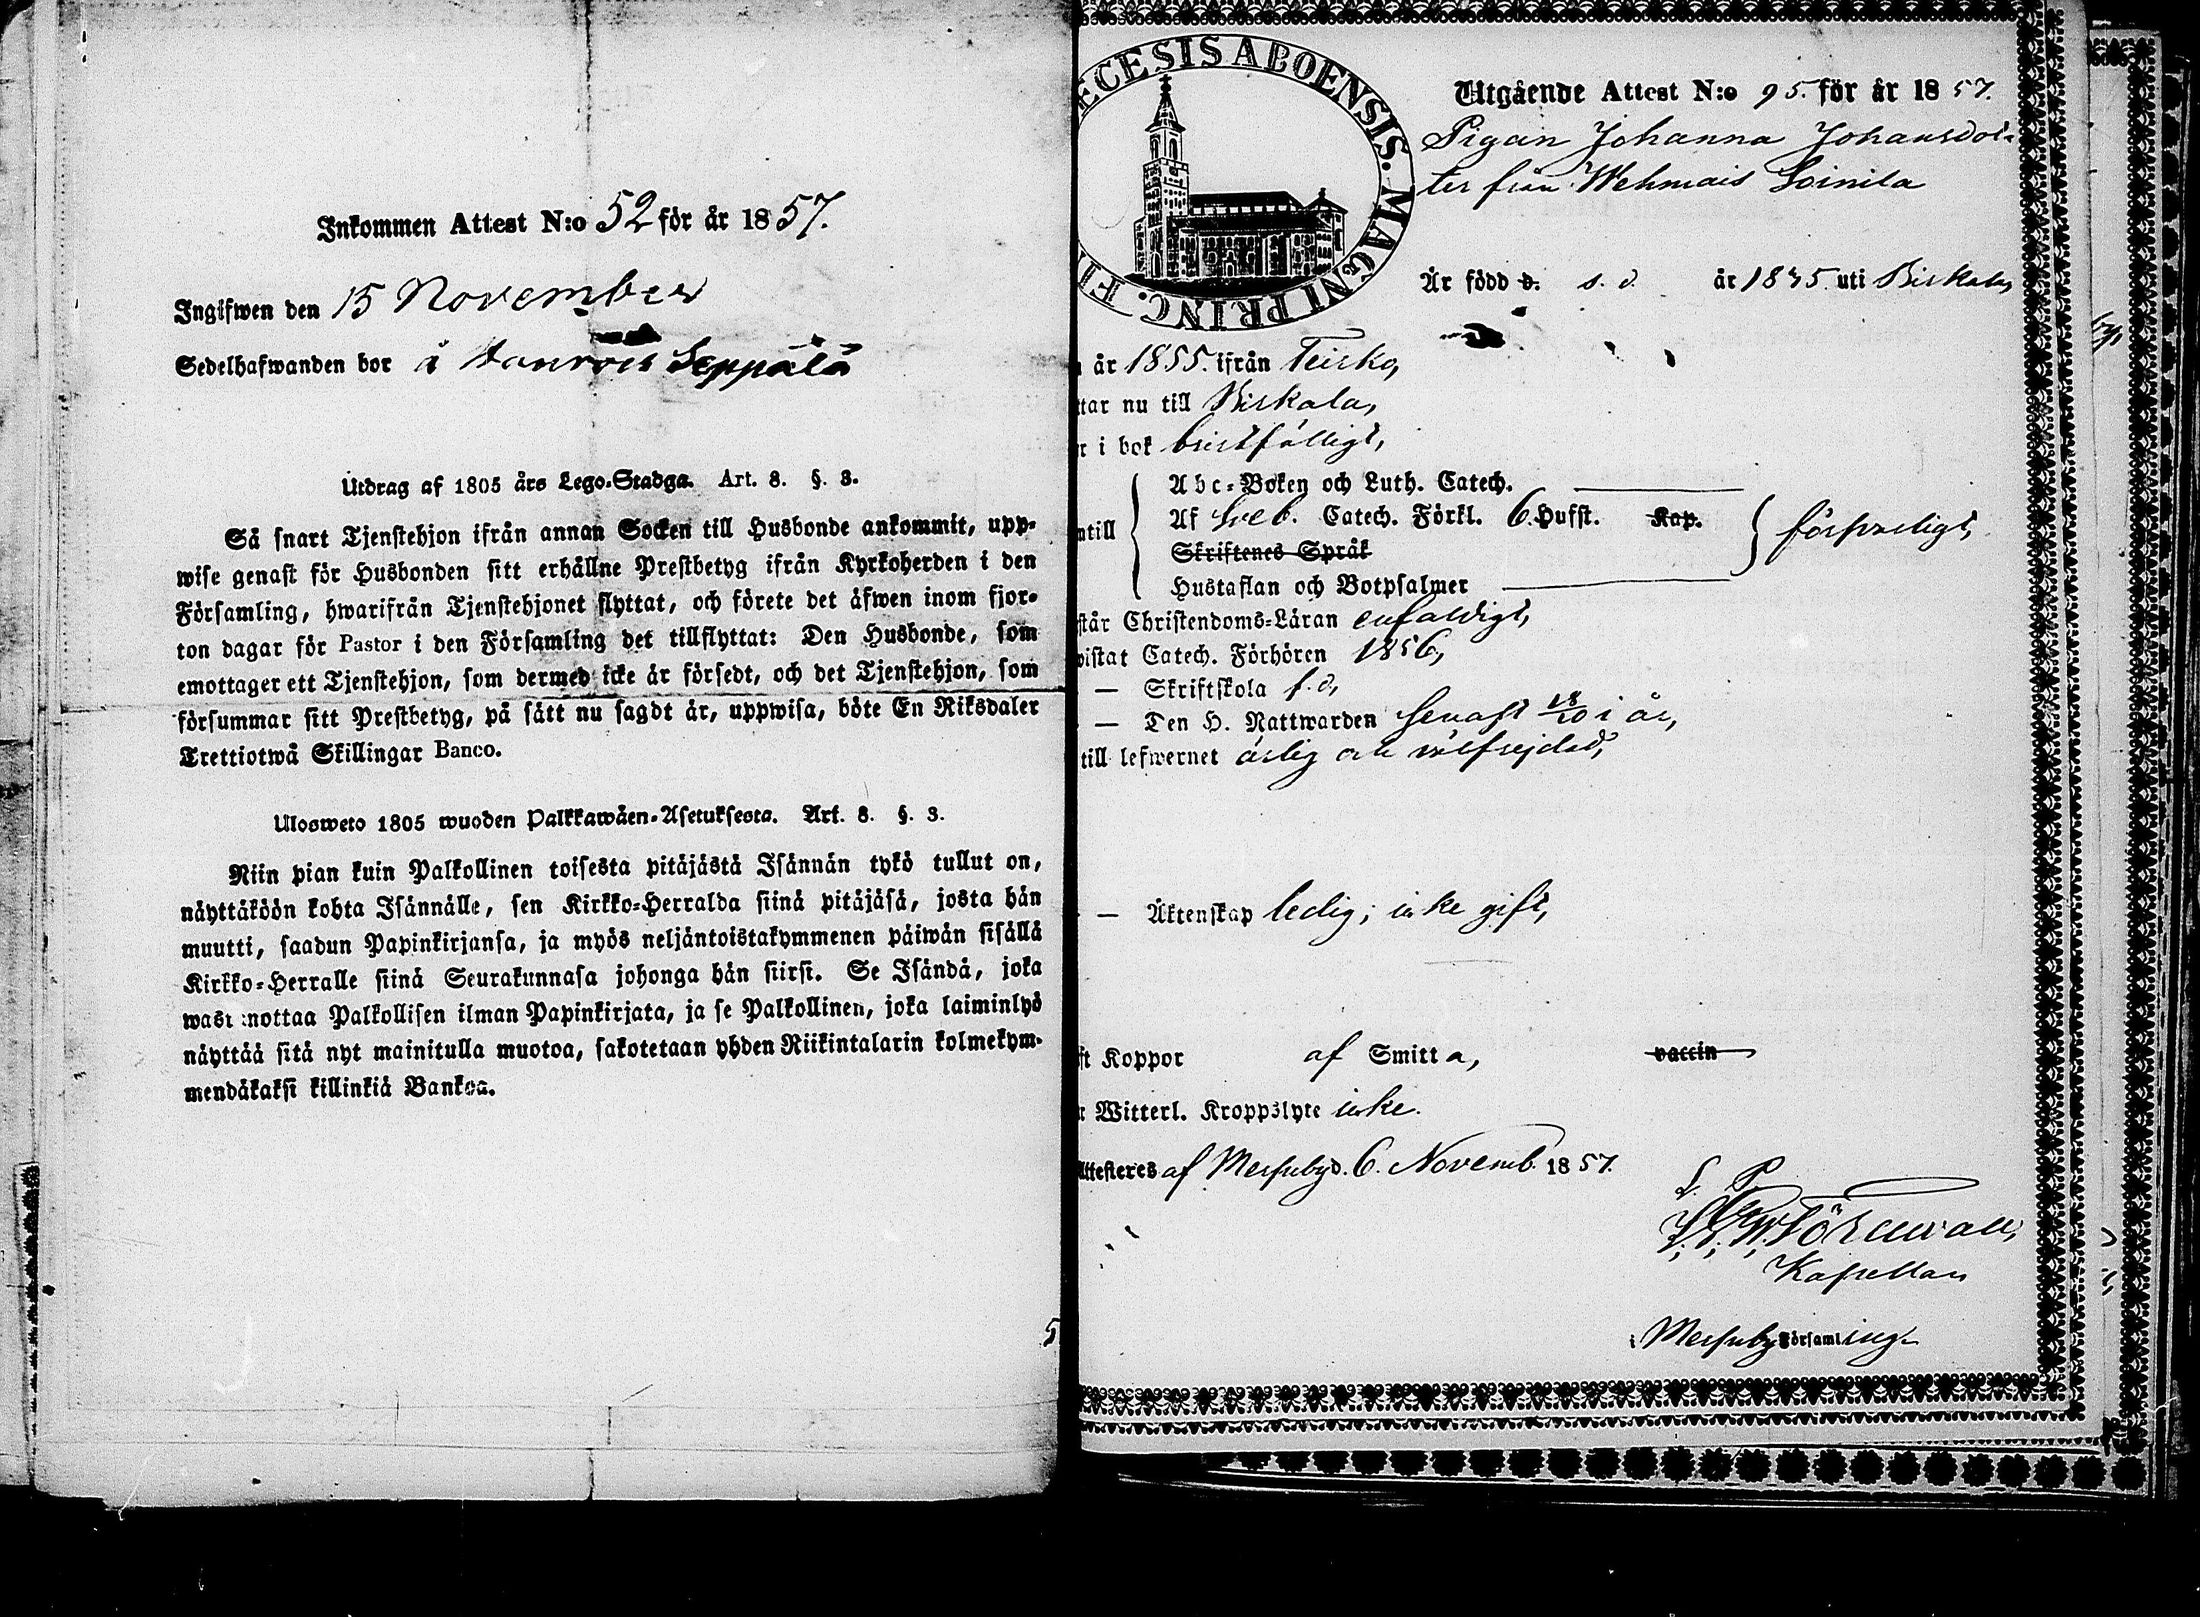 Inkommen Attest N:o 52 för år 1857.
Ingifwen den 15 November
Sedelhafwanden bor å Seppälä
Utdrag af 1805 års Lego-Stadga. Art. 8. §. 3.
Så snart Tjenstehjon ifrån annan Socken till Husbonde ankommit, upp-
wise genast för Husbonden sitt erhållne Prestbetyg ifrån Kyrkoherden i den
Församling, hwarifrån Tjenstehjonet flyttat, och förete det äfwen inom fjor-
ton dagar för Pastor i den Församling det tillflyttat: Den Husbonde, som
emottager ett Tjenstehjon, som dermed icke är försedt, och det Tjenstehjon, som
försummar sitt Prestbetyg, på sätt nu sagdt är, uppwisa, böte En Riksdaler
Trettiotwå Skillingar Banco.
Ulosweto 1805 wuoden Palkkawäen-Asetuksesta. Art. 8. §. 3.
Niin pian kuin Palkollinen toisesta pitäjästä Isännän tykö tullut on,
näyttäköön kohta Isännälle, sen Kirkko-Herralda siinä pitäjäsä, josta hän
muutti, saadun Papinkirjansa, ja myös neljäntoistakymmenen päiwän sisällä
Kirkko-Herralle siinä Seurakunnasa johonga hän siirsi. Se Isändä, joka
wast nottaa Palkollisen ilman Papinkirjata, ja se Palkollinen, joka laiminlyö
näyttää sitä nyt mainitulla muotoa, sakotetaan yhden Riikintalarin kolmekym-
mendäkaksi killinkiä Bankoa.
5
ECESIS ABOENSIS. MAGNI PRINC. FI
Utgående Attest N:o 95. för år 1857.
Pigan Johanna Johansdot-
ter från Wehmais Soinila
Är född d. s. d. år 1835 uti Birkala,
år 1855. ifrån Teisko,
ttar nu till Birkala,
r i bok bristfälligt,
Abc-Boken och Luth. Catech.
Af Sveb. Catech. Förkl. 6. Hufst. Kap.
ntill försvarligt,
Skriftenes Språk
Hustaflan och Botpsalmer
står Christendoms-Läran enfaldigt,
wistat Catech. Förhören 1856,
— Skriftskola s. d,
— Den H. Nattwarden senast 18/10 i år,
till lefwernet ärlig och välfrejdad,
— Äktenskap ledig; icke gift,
ft Koppor af Smitta, vaccin
r Witterl. Kroppslyte icke.
Attesteres af Messuby d. 6. Novemb. 1857.
Kapellan
i Messuby Församling